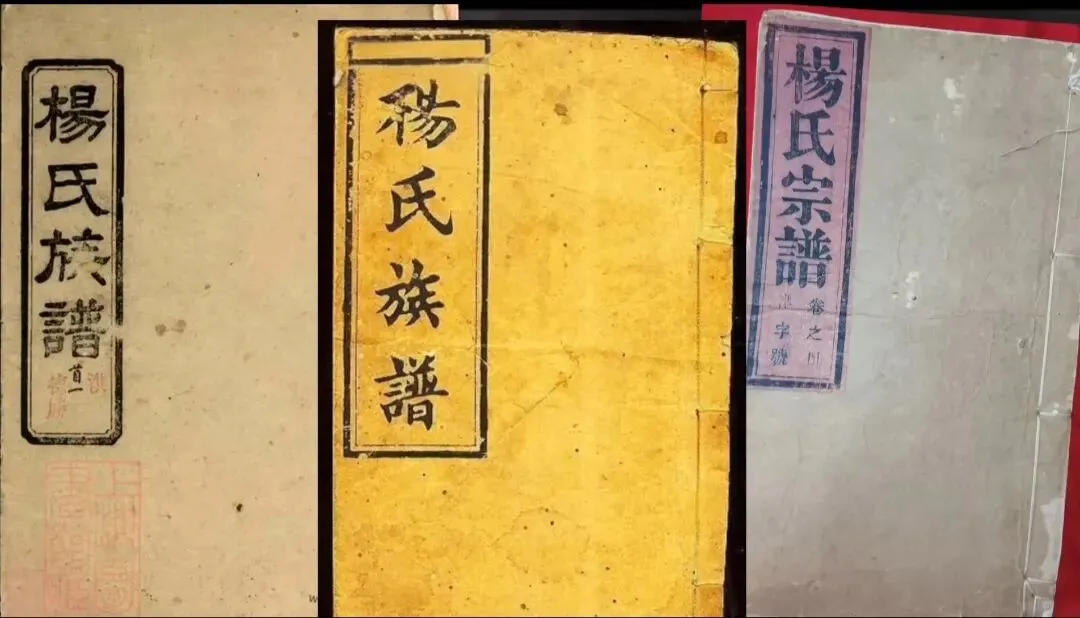 楊氏族譜
首一
楊氏族譜
楊氏宗譜
卷之四
字號